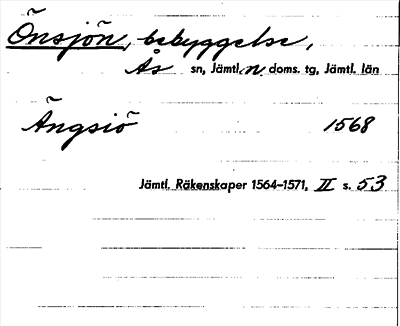 Önsjön, bebyggelse,
Ås sn, Jämtl. n. doms. tg, Jämtl. län
Ängsiö 1568
Jämtl. Räkenskaper 1564–1571, II s. 53